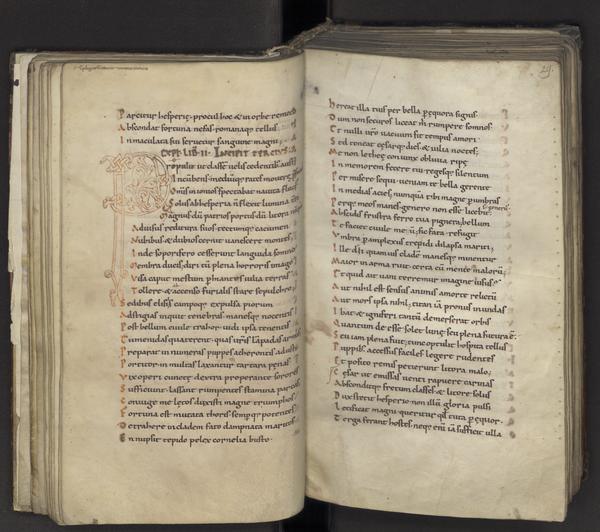 Parcitur hesperię. procul hoc & in orbe remoto
Abscondat fortuna nefas. romanaq; tellus
Inmaculata sui seruetur sanguine magni
EXPL LIB II. INCIPIT TERCIVS
Propulit ut classem uelis cedentib; auster
Incubens. mediumq; rates mouere
Omnis in ionios spectabat nauita fluctus
Solus ab hesperia ñ flexit lumina
Magnus dum patrios portus dum litora
Ad uisus reditura suos. tectumq; cacumen
Nubibus & dubios cernit uanescere montes
Inde soporifero cesserunt languida somno
Membra ducis. diri tum plena horroris imago
Visa caput mestum p hiantes iulia terras
Tollere & accenso furialis stare sepulchro
Sedibus elisiis campoq; expulsa piorum
Ad stigias inquit tenebras manesq; nocentis
Post bellum ciuile trahor uidi ipsa tenentis
Eumenidas quaterent. quas uris lāpadas armis
Preparat in numeras puppes acherontis adusti
Portitor in multas laxantur tartara pęnas
Vix operi cunctę dextra properante sorores
Sufficiunt. lassant rumpentes stamina parcas
Coniuge me lętos duxisti magne triumphos
Fortuna est mutata thoris semperq; potentes
Detrahere in cladem fato dampnata maritos
En nupsit tepido pelex cornelia busto.
Hereat illa tuis per bella p ęquora signis
Dum non securos liceat m rumpere somnos
Et nulli uro uacuum sit tempus amori
Sed teneat cęsarq; dies & iulia noctes;
Me non lethęę coniunx obliuia ripę
Inmemorem fecere tui. regesq; silentum
Per misere sequi. ueniam te bella gerente
In medias acies. numquā tibi magne p umbras
Perq; meos manes genero non esse licebit
Abscidis frustra ferro tua pignera, bellum
Te faciet ciuile meū; sic fata refugit
Vmbra p amplexus trepidi dilapsa mariti;
Ille dī quam uis cladē manesq; minentur
Maior in arma ruit. certa cū mente malorū;
Et quid ait uani terremur imagine uisus
Aut nihil est sensus animis a morte relictū
Aut mors ipsa nihil; titan iā pronus in undas
Ibat & igniferi tantū demerserat orbis
Quantum de esse solet lunę seu plena futura ē
Seu iam plena fuit; tunc optulit hospita tellus
Puppib; accessus faciles legere rudentes
Et posito remis petierunt litora malo;
Cęsar ut emissas uenti rapuere carinas
Absconditq; fretum classes & litore solus
Dux stetit hesperio non illū gloria pulsi
Lętificat magni queritur qđ tuta p ęquor
Terga ferant hostes neq; enī iā sufficit ulla